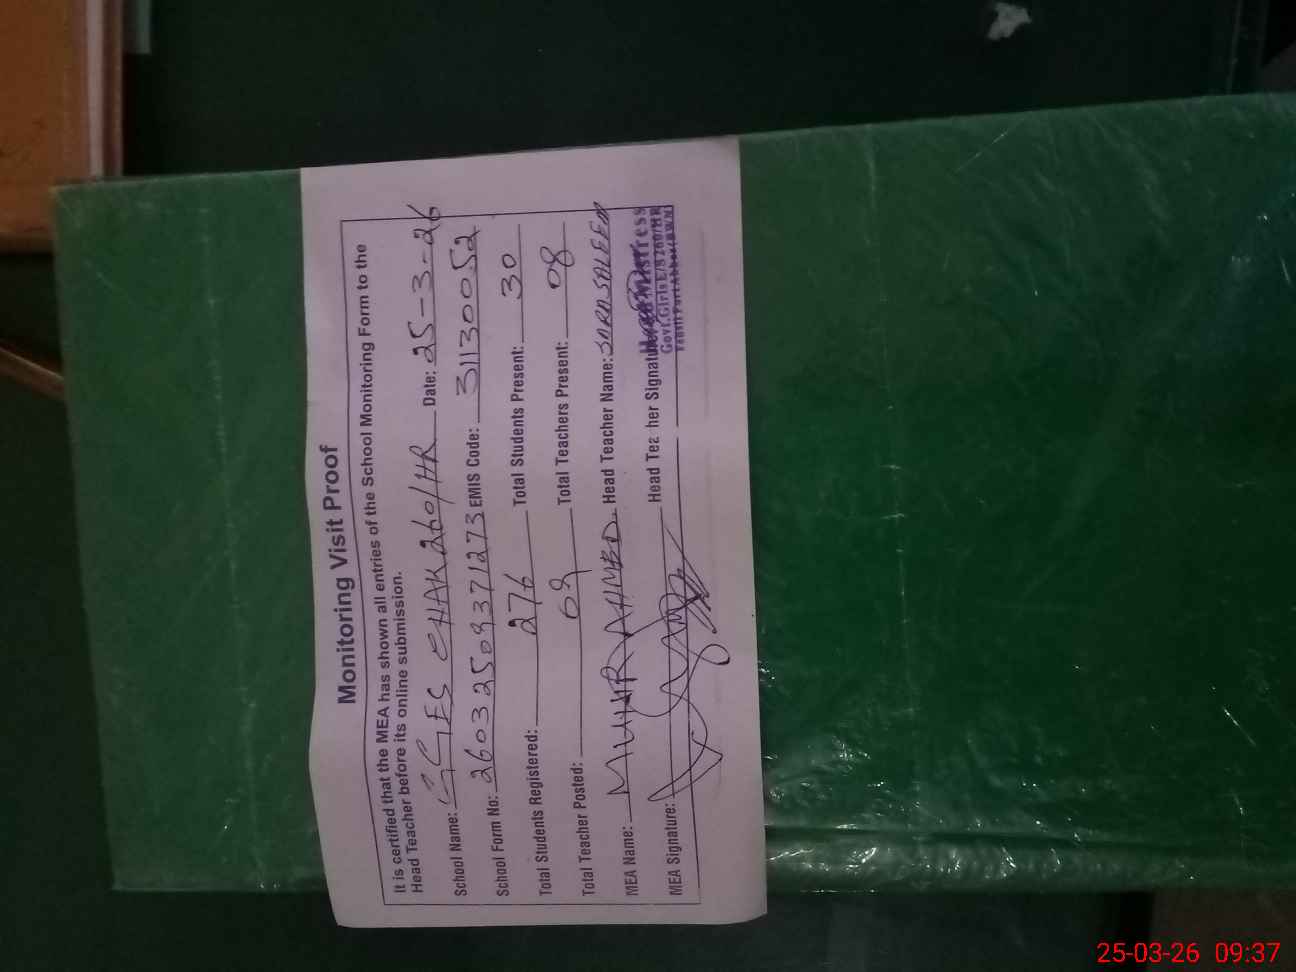 Monitoring Visit Proof
It is certified that the MEA has shown all entries of the School Monitoring Form to the
Head Teacher before its online submission.
School Name: GGES CHAK 260/HR Date: 25-3-26
School Form No: 26032509371273 EMIS Code: 31130052
Total Students Registered: 276 Total Students Present: 30
Total Teacher Posted: 09 Total Teachers Present: 08
MEA Name: MUNIR AHMED Head Teacher Name: SARA SALEEM
MEA Signature: Head Teacher Signature:
Head Mistress
Govt. Girls E/S 260/HR
Faqir Fort Abbas (BWN)
25-03-26 09:37